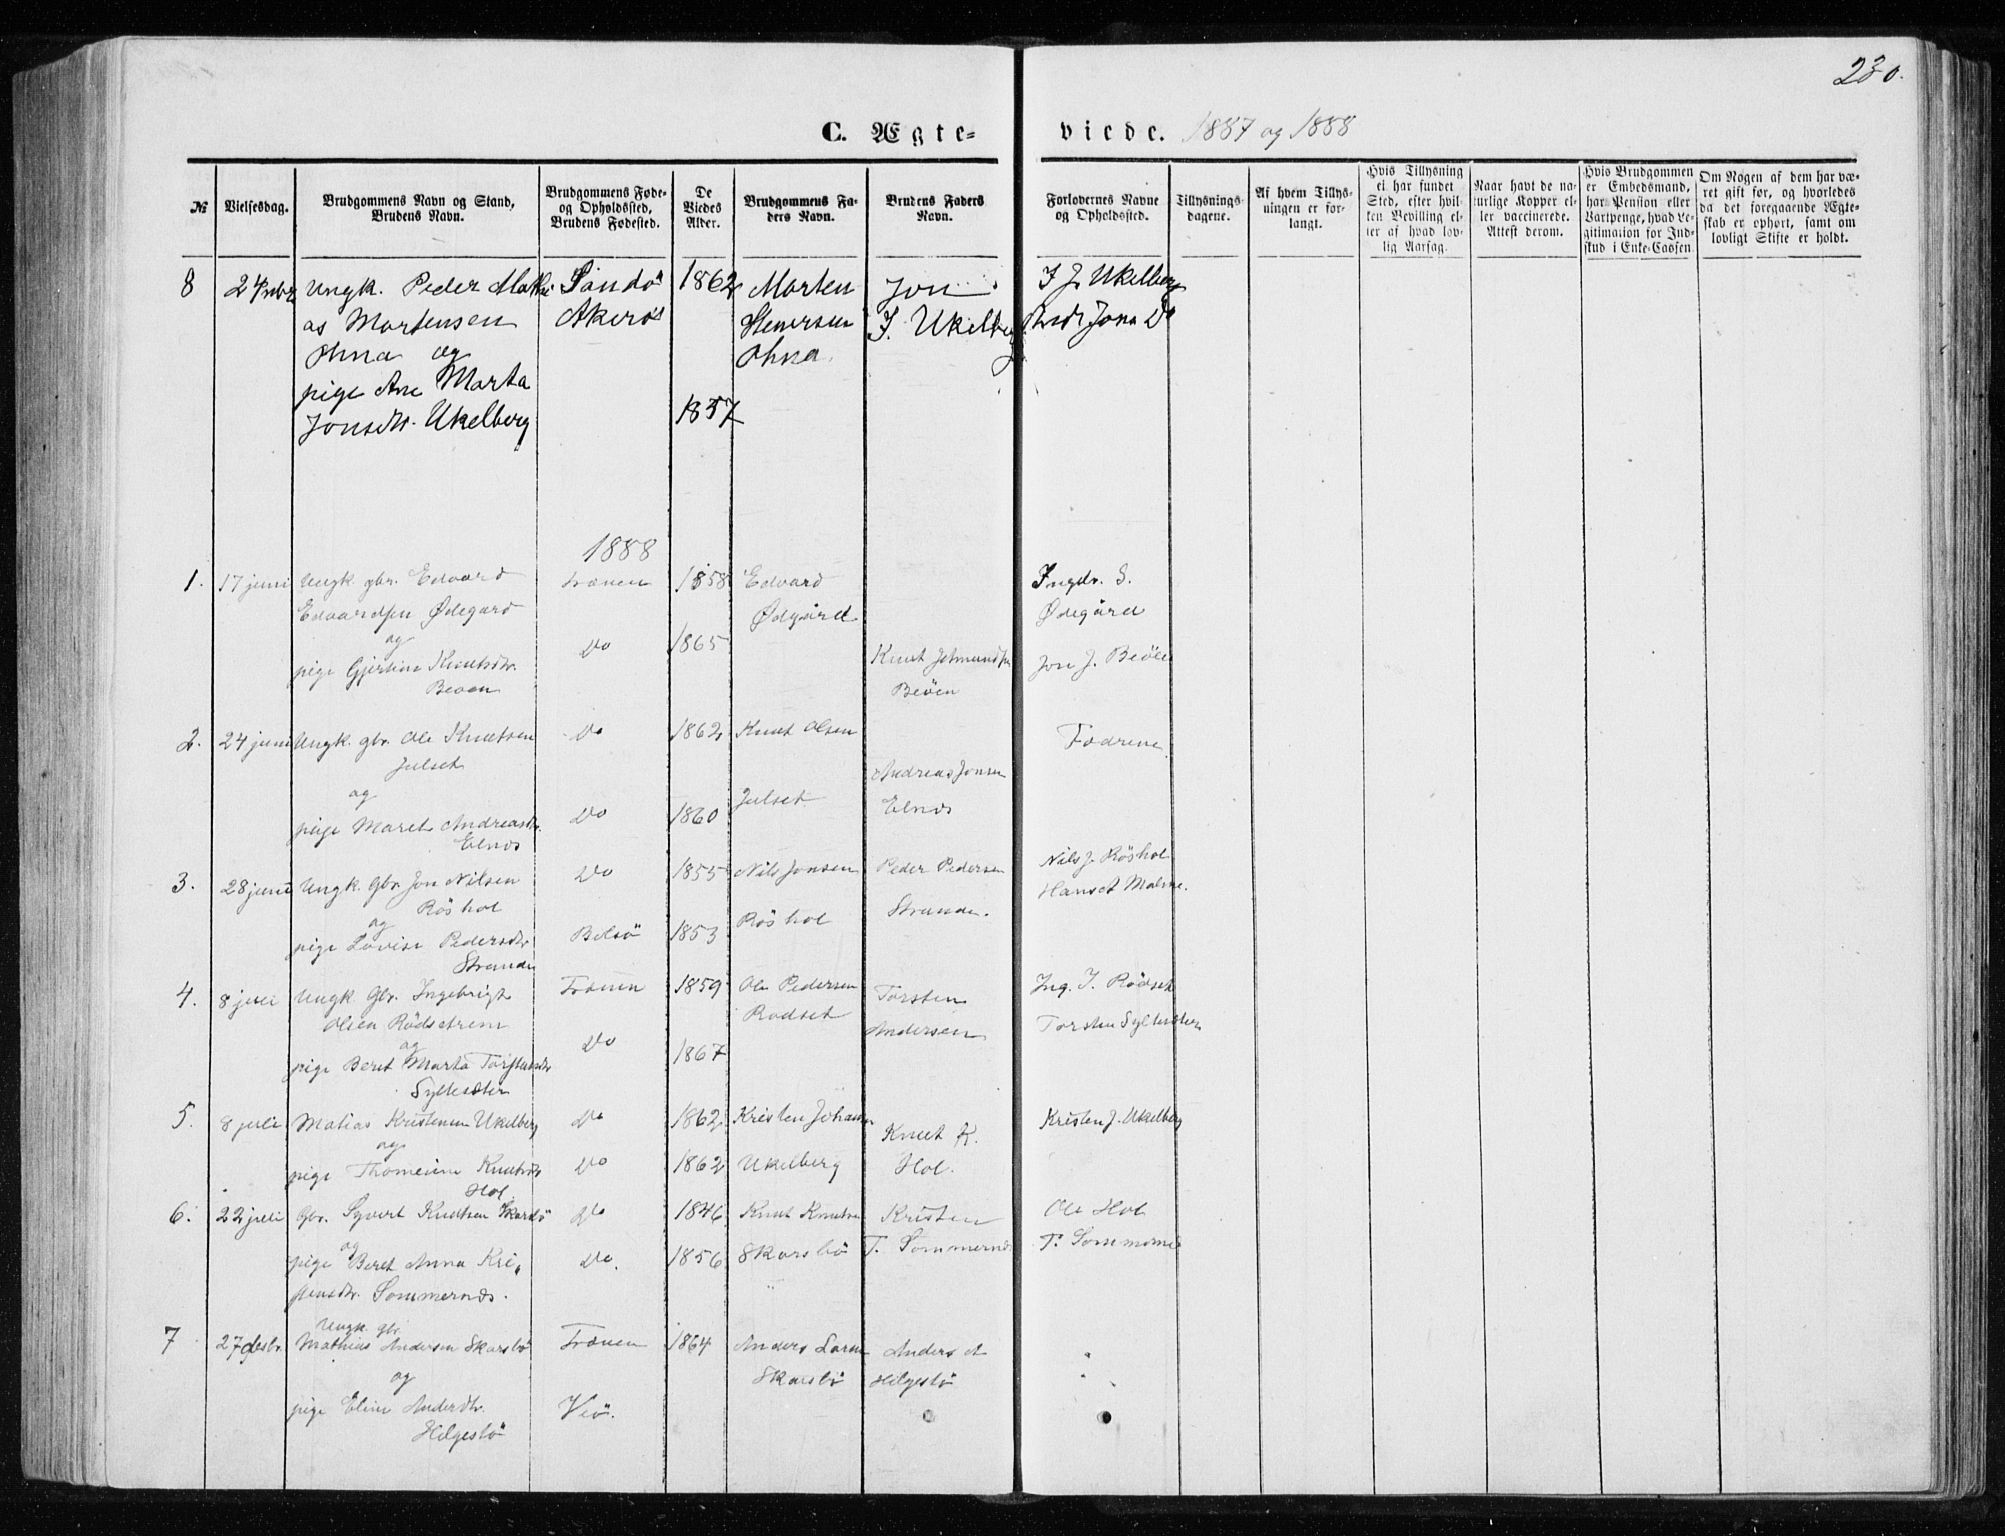 230.
C. Ægte=
viede. 1887 og 1888
№
Vielsesdag.
Brudgommens Navn og Stand,
Brudens Navn.
Brudgommens Føde-
og Opholdssted,
Brudens Fødested.
De
Viedes
Alder.
Brudgommens Fa-
ders Navn.
Brudens Faders
Navn.
Forlovernes Navne
og Opholdssted.
Tillysnings-
dagene.
Af hvem Tillys-
ningen er for-
langt.
Hvis Tillysning
ei har fundet
Sted, efter hvil-
ken Bevilling el-
ler af hvad lov-
lig Aarsag.
Naar havt de na-
turlige Kopper el-
ler vaccinerede.
Attest derom.
Hvis Brudgommen
er Embedsmand,
har Pension eller
Vartpenge, hvad Le-
gitimation for Ind-
skud i Enke-Cassen.
Om Nogen af dem har væ-
ret gift før, og hvorledes
da det foregaaende Ægte-
skab er ophørt, samt om
lovligt Skifte er holdt.
8 24 Ungk. Peder Mathi- Sandö 1862 Morten Jon I J. Ukelberg
as Mortensen Akerö I. Ukelberg
Ohna og Ohna
pige Ane Marta
Jonsdtr. Ukelberg 1857
1888
1. 17 juni Ungk. gbr. Edvard Frænen 1858 Edvard Ingbr. S.
Edvardsen Ødegard Ødgård Ødegård
og
pige Gjertine Knutsdtr. Do 1865 Knut Jon J. Beöen
Beoen Beöen
2. 24 juni Ungk. gbr. Ole Knutsen Do 1862 Knut Olsen Fædrene
Julset Julset Andreas Jonsen
og Elnes
pige Maret Andreasdtr. Do 1860
Elnes
3. 28 juni Ungk. Gbr. Jon Nilsen Do 1855 Nils Jonsen Peder Pedersen Nils J. Röshol
Röshol Röshol Strande. Hans A Malme.
og
pige Lovise Pedersdtr Bolsö 1853
Strande
4. 8 juli Ungk. Gbr. Ingebrigt Frænen 1859 Ole Pedersen Torsten Ing. I. Rödset
Olsen Rödsetrem Rodset Andersen Torsten Syltesæter
og
pige Beret Marta Torstensdtr Do 1867
Syltesæter
5. 8 juli Matias Kristensen Ukelberg Do 1862 Kristen Johansen Knut K. Kristen J. Ukelberg
og
pige Thomine Knutsdtr Do 1862 Ukelberg Hol.
Hol
6. 22 juli Gbr. Syvert Knutsen Skarsbö Do 1846 Knut Knutsen Kristen Ole Hol
og
pige Beret Anna Kri- Do. 1856 Skarsbö T. Sommernes T. Sommernes
stensdtr. Sommernes.
7 27 desbr. Ungk. gbr.
Mathias Andersen Skarsbö Frænen 1864 Anders Larsen Anders A
og Skarsbö Hilgesbö
pige Eline Andersdtr. Veö.
Hilgesbö